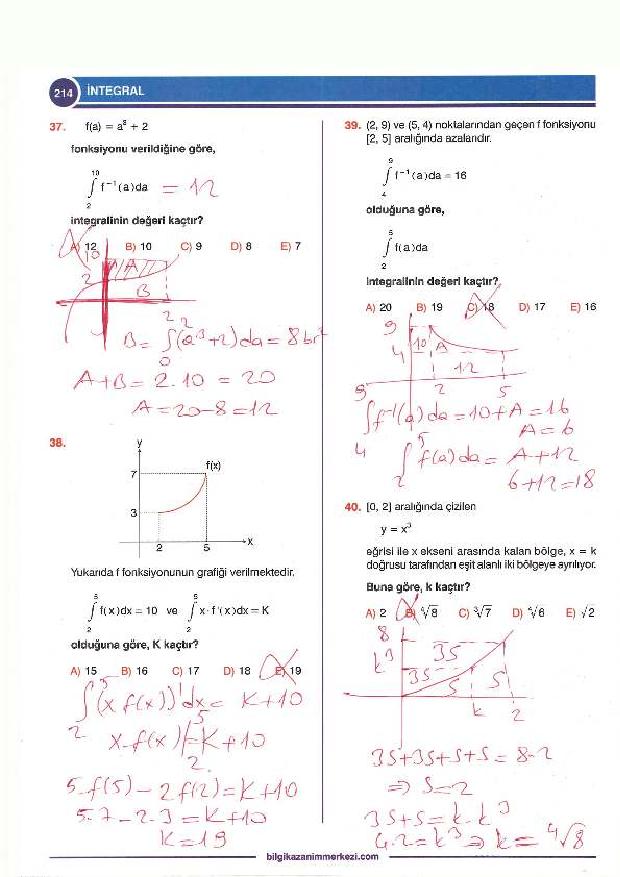 214 İNTEGRAL
37. f(a) = a³ + 2
fonksiyonu verildiğine göre,
10
∫ f⁻¹(a)da = 12
2
integralinin değeri kaçtır?
A) 12 B) 10 C) 9 D) 8 E) 7
10
2
A
B
2
2
B = ∫(a³+2)da = 8br²
0
A+B = 2.10 = 20
A = 20-8 = 12
38.
y
7
f(x)
3
2 5 x
Yukarıda f fonksiyonunun grafiği verilmektedir.
5 5
∫ f(x)dx = 10 ve ∫ x·f'(x)dx = K
2 2
olduğuna göre, K kaçtır?
A) 15 B) 16 C) 17 D) 18 E) 19
5
∫(x f(x))'dx = K+10
2
5
x.f(x)| = K+10
2
5.f(5) - 2f(2) = K+10
5.7 - 2.3 = K+10
K = 19
39. (2, 9) ve (5, 4) noktalarından geçen f fonksiyonu
[2, 5] aralığında azalandır.
9
∫ f⁻¹(a)da = 16
4
olduğuna göre,
5
∫ f(a)da
2
integralinin değeri kaçtır?
A) 20 B) 19 C) 18 D) 17 E) 16
9
4 10 A
12
2 5
9
∫f⁻¹(a)da = 10+A = 16
4
A = 6
5
∫ f(a)da = A+12
2
6+12 = 18
40. [0, 2] aralığında çizilen
y = x³
eğrisi ile x ekseni arasında kalan bölge, x = k
doğrusu tarafından eşit alanlı iki bölgeye ayrılıyor.
Buna göre, k kaçtır?
A) 2 B) ⁴√8 C) ³√7 D) ⁴√6 E) √2
8
k³
3S
3S S S
k 2
3S+3S+S+S = 8.2
⇒ S = 2
3S+S = k.k³
4.2 = k³ ⇒ k = ⁴√8
bilgikazanimmerkezi.com